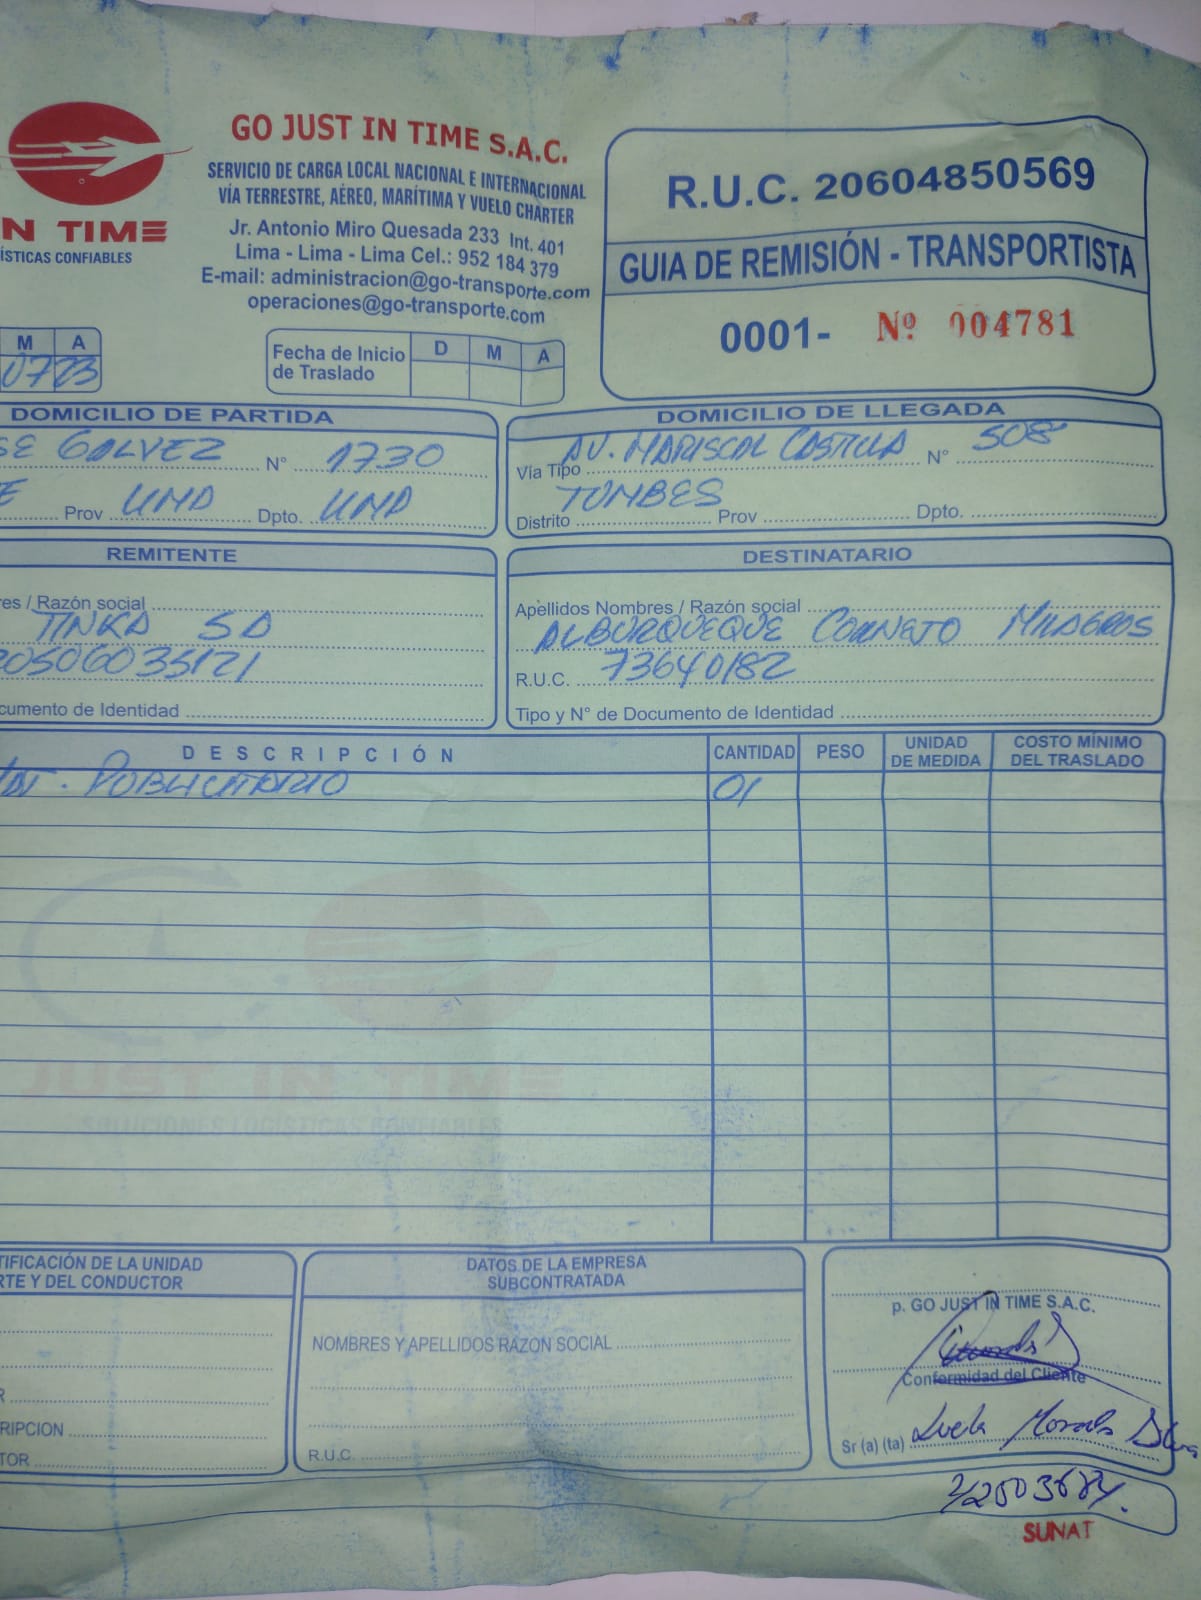 GO JUST IN TIME S.A.C.
SERVICIO DE CARGA LOCAL NACIONAL E INTERNACIONAL
VÍA TERRESTRE, AÉREO, MARÍTIMA Y VUELO CHARTER
Jr. Antonio Miro Quesada 233 Int. 401
Lima - Lima - Lima Cel.: 952 184 379
E-mail: administracion@go-transporte.com
operaciones@go-transporte.com
N TIME
ÍSTICAS CONFIABLES
R.U.C. 20604850569
GUIA DE REMISIÓN - TRANSPORTISTA
0001- Nº 004781
M A
07 23
Fecha de Inicio de Traslado D M A
DOMICILIO DE PARTIDA
SE GALVEZ N° 1730
E Prov LIMA Dpto. LIMA
DOMICILIO DE LLEGADA
Vía Tipo AV. MARISCAL CASTILLA N° 508
Distrito TUMBES Prov Dpto.
REMITENTE
res / Razón social
TINKA SA
20506035121
cumento de Identidad
DESTINATARIO
Apellidos Nombres / Razón social
ALBURQUEQUE CORNEJO MILAGROS
R.U.C. 73640182
Tipo y N° de Documento de Identidad
DESCRIPCIÓN CANTIDAD PESO UNIDAD DE MEDIDA COSTO MÍNIMO DEL TRASLADO
MAT. PUBLICITARIO 01
JUST IN TIME
SOLUCIONES LOGÍSTICAS CONFIABLES
TIFICACIÓN DE LA UNIDAD
RTE Y DEL CONDUCTOR
R
RIPCION
TOR
DATOS DE LA EMPRESA
SUBCONTRATADA
NOMBRES Y APELLIDOS RAZON SOCIAL
R.U.C.
p. GO JUST IN TIME S.A.C.
Conformidad del Cliente
Sr (a) (ta) Morales
SUNAT